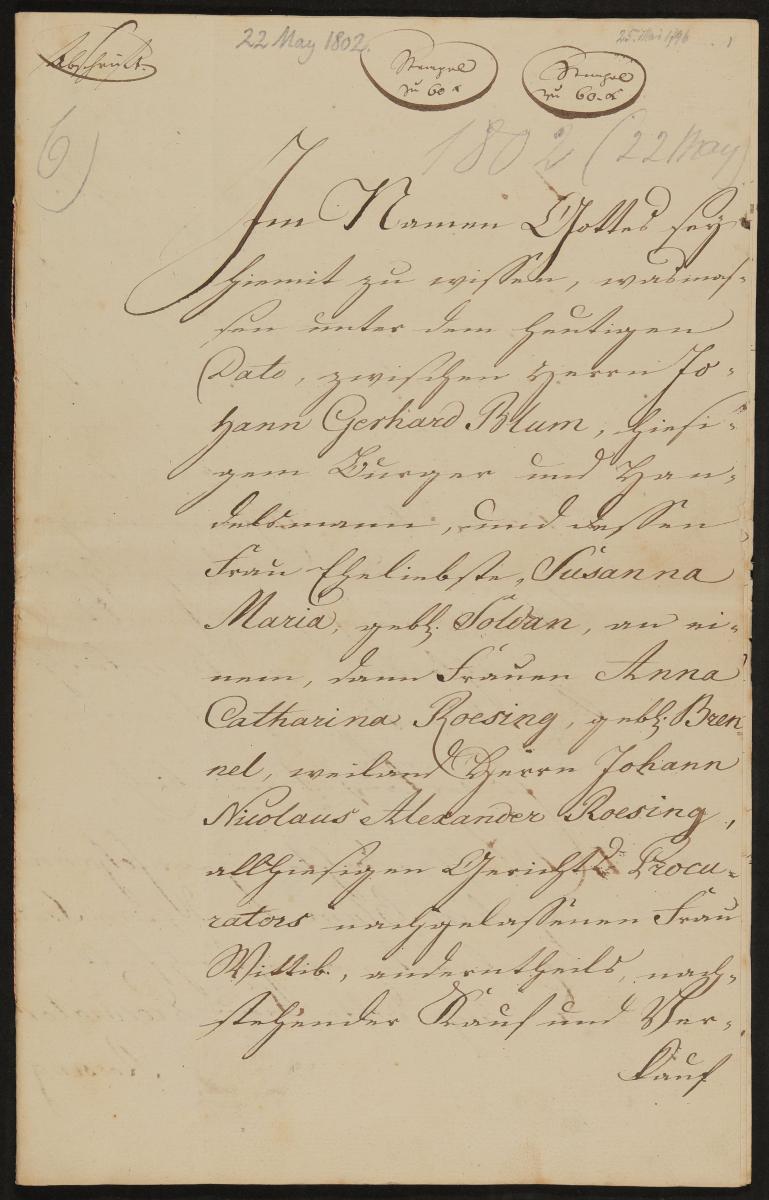 Abschrift.
22 May 1802.
25. Mai 1796
Stempel
zu 60 x
Stempel
zu 60 x
6)
1802 (22 May)
Im Namen Gottes sey
hiemit zu wissen, wasmas-
sen unter dem heutigen
Dato, zwischen Herrn Jo-
hann Gerhard Blum, hiesi-
gem Burger und Han-
delsmann, und dessen
Frau Eheliebste, Susanna
Maria, gebh. Soldan, an ei-
nem, dann Frauen Anna
Catharina Roesing, gebh. Bren-
nel, weiland Herrn Johann
Nicolaus Alexander Roesing,
allhiesigen Gerichts Procu-
rators nachgelassenen Frau
Wittib., anderntheils, nach-
stehender Kauf und Ver-
kauf